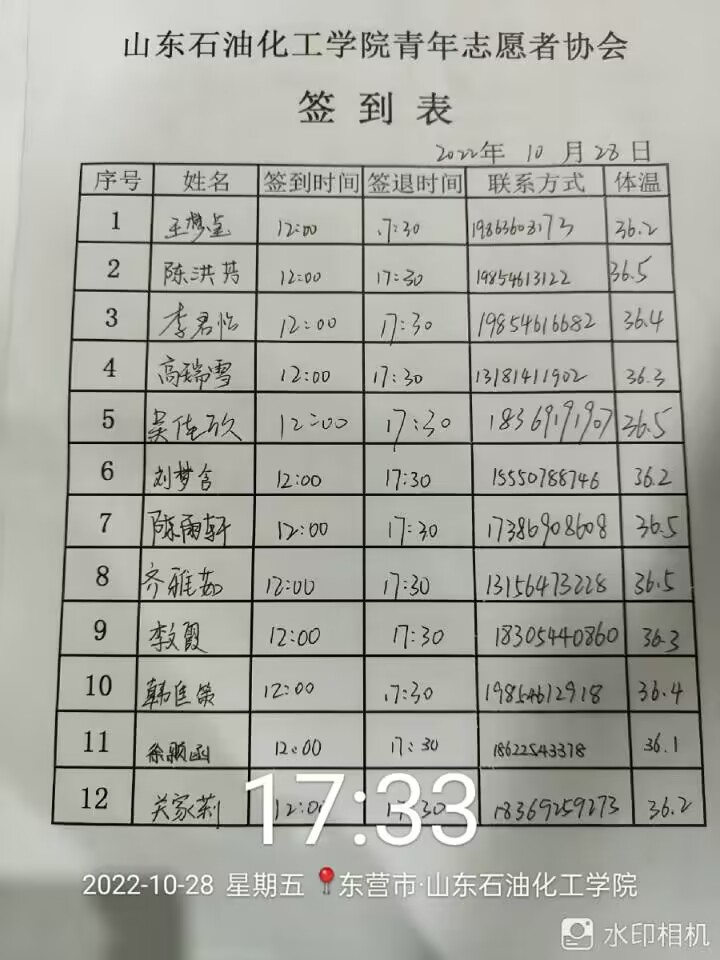 山东石油化工学院青年志愿者协会
签到表
2022年 10 月 28 日
序号 姓名 签到时间 签退时间 联系方式 体温
1 王梦莹 12:00 17:30 19863608173 36.2
2 陈洪芳 12:00 17:30 19854613122 36.5
3 李君怡 12:00 17:30 19854616682 36.4
4 高瑞雪 12:00 17:30 13181411902 36.3
5 吴佳欣 12:00 17:30 18369191907 36.5
6 刘梦含 12:00 17:30 15550788746 36.2
7 陈雨轩 12:00 17:30 17386908608 36.5
8 齐雅茹 12:00 17:30 13156473228 36.5
9 李文霞 12:00 17:30 18305440860 36.3
10 12:00 17:30 19854612918 36.4
11 徐颖函 12:00 17:30 18622543378 36.1
12 关家莉 12:00 17:30 18369259273 36.2
17:33
2022-10-28 星期五 东营市·山东石油化工学院
水印相机